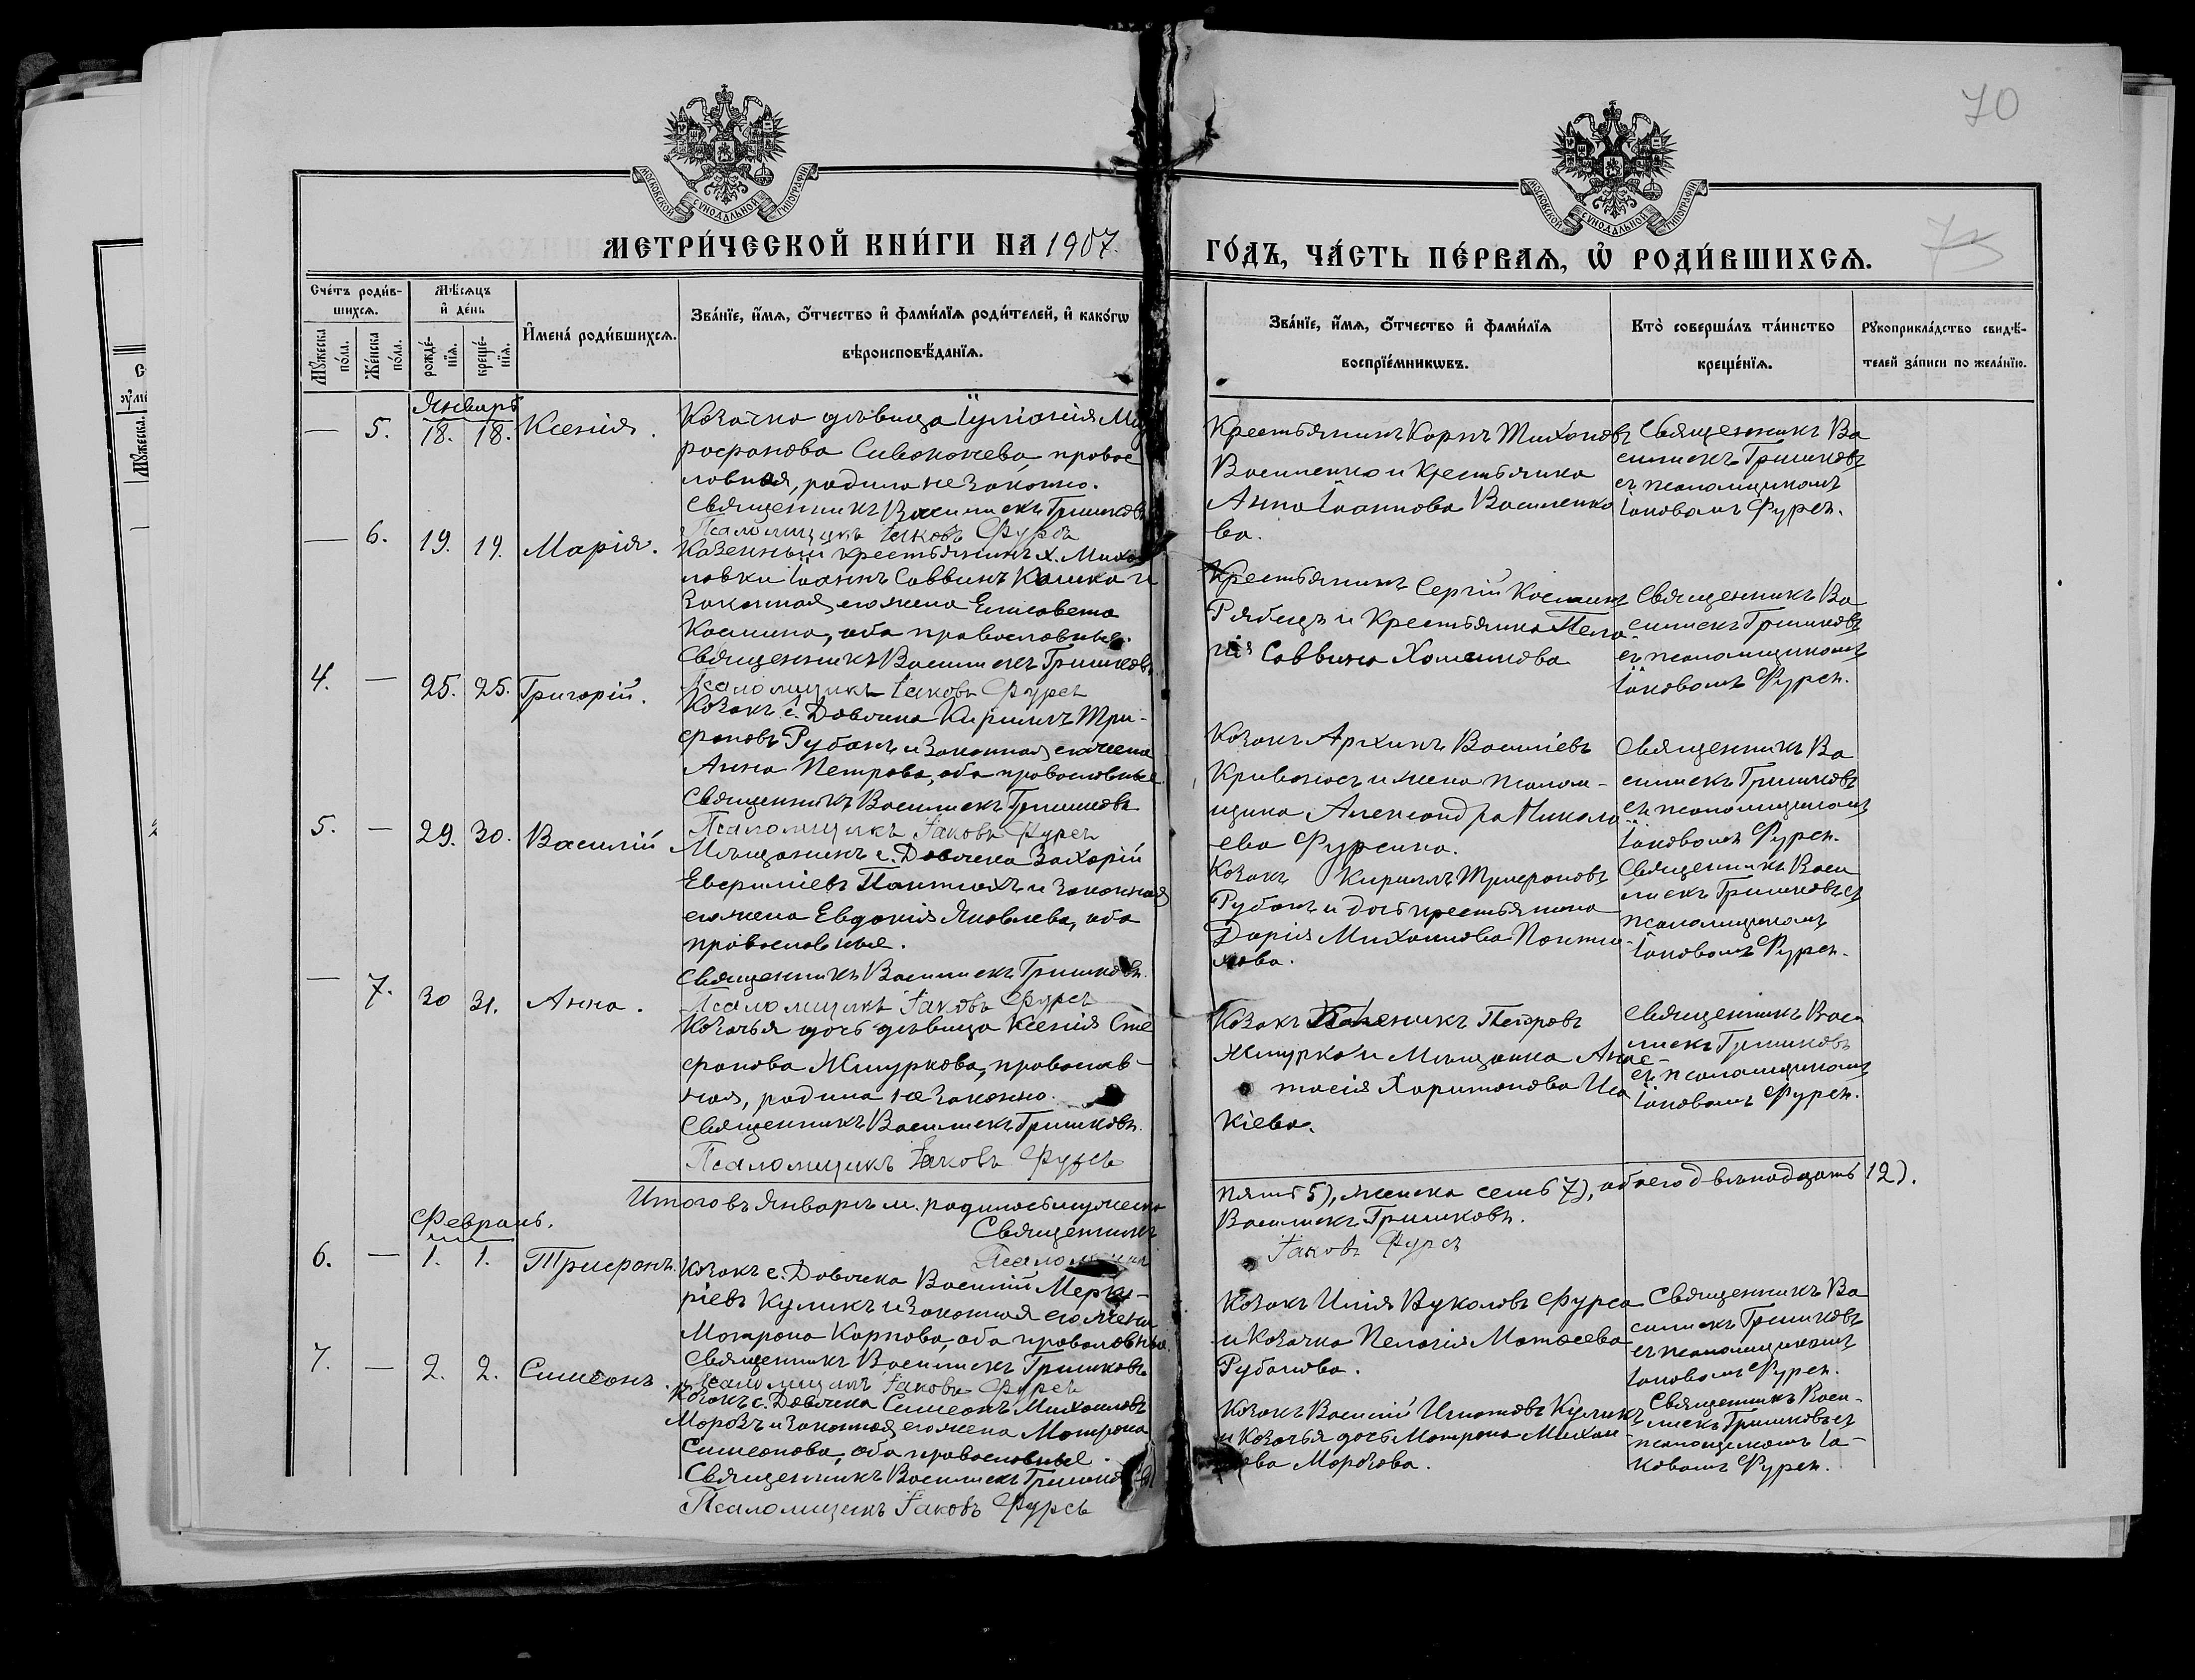 70
75
МОСКОВСКОЙ СѴНОДАЛЬНОЙ ТИПОГРАФІИ
МОСКОВСКОЙ СѴНОДАЛЬНОЙ ТИПОГРАФІИ
МЕТРИ́ЧЕСКОЙ КНИ́ГИ НА 1907.
ГО́ДЪ, ЧА́СТЬ ПЕ́РВАѦ, Ѡ҆ РОДИ́ВШИХСѦ.
Сче́тъ роди́в-
шихсѧ.
Мꙋ́жеска
по́ла.
Же́нска
по́ла.
Мѣ́сѧцъ
и҆ де́нь
рожде́-
нїѧ.
креще́-
нїѧ.
И҆мена̀ роди́вшихсѧ.
Зва́нїе, и҆́мѧ, ѻ҆́тчество и҆ фами́лїѧ роди́телей, и҆ како́гѡ
вѣроисповѣ́данїѧ.
Зва́нїе, и҆́мѧ, ѻ҆́тчество и҆ фами́лїѧ
воспрїе́мникѡвъ.
Кто̀ соверша́лъ та́инство
креще́нїѧ.
Рꙋкоприкла́дство свидѣ́-
телей за́писи по жела́нїю.
Январь
— 5. 18. 18. Ксенія.
Козачка дѣвица Іуліанія Мит
рофанова Сивоконева, правос
лавная, родила незаконно.
Священникъ Василискъ Гришковъ
Псаломщикъ Іаковъ Фурсъ
Крестьянинъ Карпъ Тихоновъ
Василенко и Крестьянка
Анна Іоаннова Василенко
ва.
Священникъ Ва
силискъ Гришковъ
съ псаломщикомъ
Іаковомъ Фурсъ.
— 6. 19. 19. Марія.
Казенный крестьянинъ х. Михай
ловки Іоаннъ Саввинъ и
законная его жена Елисавета
Космина, оба православные.
Священникъ Василискъ Гришковъ.
Псаломщикъ Іаковъ Фурсъ
Крестьянинъ Сергій Косминъ
Рябецъ и Крестьянка Пела-
гія Саввина Хоменкова
Священникъ Ва
силискъ Гришковъ
съ псаломщикомъ
Іаковомъ Фурсъ.
4. — 25. 25. Григорій.
Козакъ с. Довжика Кириллъ Три-
фоновъ Рубанъ и законная его жена
Анна Петрова, оба православные.
Священникъ Василискъ Гришковъ
Псаломщикъ Іаковъ Фурсъ
Козакъ Архипъ Василіевъ
Кривоносъ и жена псалом-
щика Александра Никола-
ева Фурсина.
Священникъ Ва
силискъ Гришковъ
съ псаломщикомъ
Іаковомъ Фурсъ.
5. — 29. 30. Василій
Мѣщанинъ с. Довжика Захарій
Евфиміевъ Пантюхъ и законная
его жена Евдокія Яковлева, оба
православные.
Священникъ Василискъ Гришковъ.
Псаломщикъ Іаковъ Фурсъ
Козакъ Кириллъ Трифоновъ
Рубанъ и дочь крестьянина
Дарія Михаилова Пантю-
хова.
Священникъ Васи
лискъ Гришковъ съ
псаломщикомъ
Іаковомъ Фурсъ.
— 7. 30 31. Анна.
Козачья дочь дѣвица Ксенія Сте
фанова Жмуркова, православ-
ная, родила незаконно.
Священникъ Василискъ Гришковъ.
Псаломщикъ Іаковъ Фурсъ
Козакъ Петровъ
Жмурко и Мѣщанка Анас-
тасія Харитонова Иса
кіева.
Священникъ Васи
лискъ Гришковъ
съ псаломщикомъ
Іаковомъ Фурсъ.
Итого въ Январѣ м. родилось мужеска
пять 5), женска семь 7), обоего двѣнадцать 12).
Священникъ
Василискъ Гришковъ.
Псаломщикъ
Іаковъ Фурсъ
Февраль.
6. — 1. 1. Трифонъ.
Козакъ с. Довжика Василій Мерку-
ріевъ Куликъ и законная его жена
Матрона Карпова, оба православные
Священникъ Василискъ Гришковъ
Псаломщикъ Іаковъ Фурсъ
Козакъ Илія Вуколовъ Фурса
и Козачка Пелагія Матѳеева
Рубанова.
Священникъ Ва
силискъ Гришковъ
съ псаломщикомъ
Іаковомъ Фурсъ.
7. — 2. 2. Симеонъ.
Козакъ с. Довжика Симеонъ Михаиловъ
Морозъ и законная его жена Матрона
Симеонова, оба православные.
Священникъ Василискъ Гришковъ
Псаломщикъ Іаковъ Фурсъ
Козакъ Василій Игнатовъ Куликъ
и Козачья дочь Матрона Михаи-
лова Морозова.
Священникъ Васи-
лискъ Гришковъ съ
псаломщикомъ Іа-
ковомъ Фурсъ.